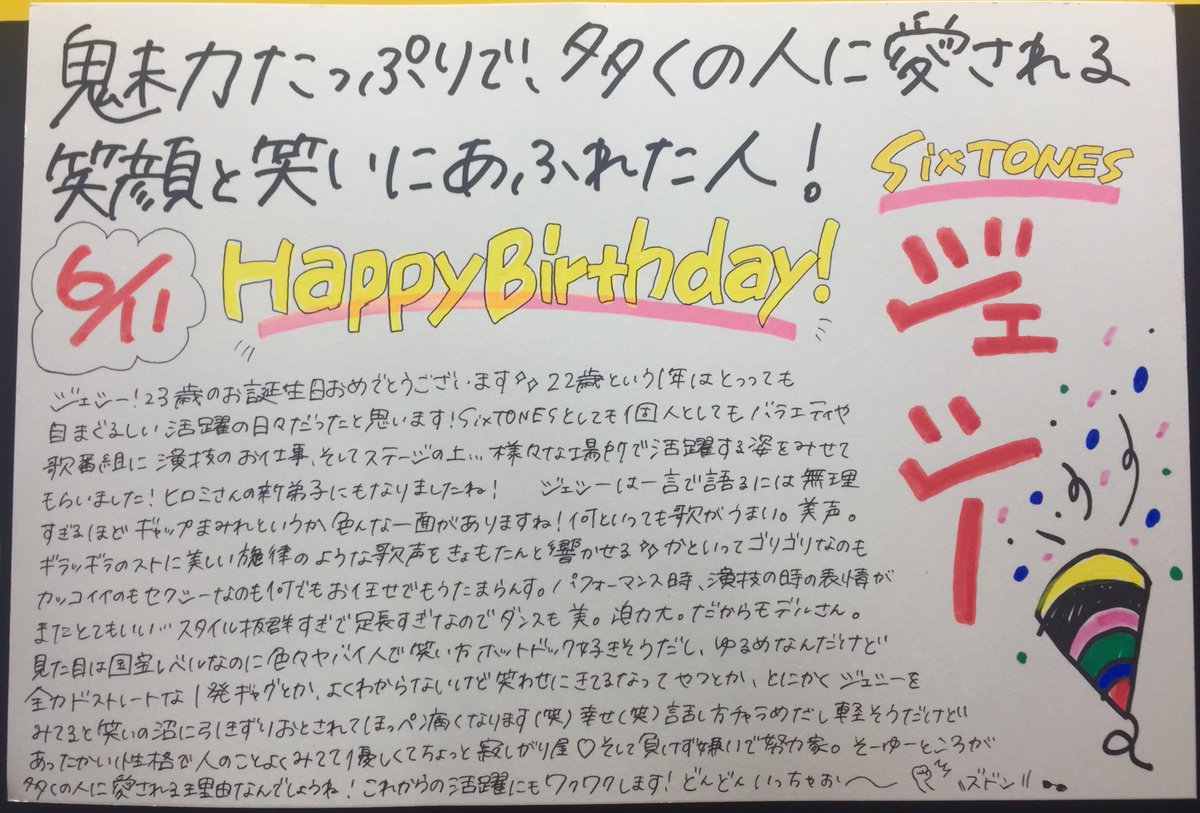 魅力たっぷりで、多くの人に愛される
笑顔と笑いにあふれた人!
SixTONES
ジェシー
6/11
Happy Birthday!
ジェシー!23歳のお誕生日おめでとうございます✨22歳という1年はとっっても
目まぐるしい活躍の日々だったと思います!SixTONESとしても1個人としてもバラエティや
歌番組に演技のお仕事、そしてステージの上…様々な場所で活躍する姿をみせて
もらいました!ヒロミさんの新弟子にもなりましたね! ジェシーは一言で語るには無理
すぎるほどギャップまみれというか、色んな一面がありますね!何といっても歌がうまい。美声。
ギラッギラのストに美しい旋律のような歌声をきょもたんと響かせる✨かといってゴリゴリなのも
カッコイイのもセクシーなのも何でもお任せでもうたまらんす。パフォーマンス時、演技の時の表情が
またとてもいい…スタイル抜群すぎで足長すぎなのでダンスも美。迫力大。だからモデルさん。
見た目は国宝レベルなのに色々ヤバイ人で笑い方ホットドック好きそうだし、ゆるめなんだけど
全力ドストレートな1発ギャグとか、よくわからないけど笑わせにきてるなってやつとか、とにかくジェシーを
みてると笑いの沼に引きずりおとされてほっぺン痛くなります(笑)幸せ(笑)話し方チャラめだし軽そうだけど
あったかい性格で人のことよくみてて優しくてちょっと寂しがり屋♡そして負けず嫌いで努力家。そーゆーところが
多くの人に愛される理由なんでしょうね!これからの活躍にもワクワクします!どんどんいっちゃお〜 ズドン!!